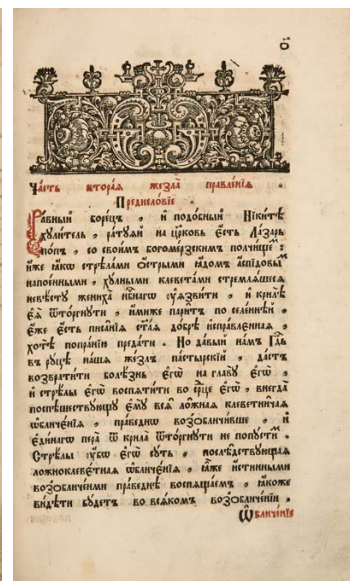 о҃
Ча́сть втора́ѧ жезла̀ правле́нїѧ .
Предисло́вїе .
Ра́вный боре́цъ , и҆ подо́бный Ники́тѣ
хꙋли́тель , ра́тꙋѧй на цр҃ковь є҆́сть Ла́зарь
по́пъ , со свои́мъ богоме́рзскимъ полчи́щеⷨ :
и҆́же ꙗ҆́кѡ стрѣла́ми ѻ҆́стрыми ꙗ҆́домъ а҆́спїдовыⷨ
напое́нными , хꙋ́лными клевета́ми стремлѧ́шесѧ
невѣ́стꙋ жениха̀ нбⷭ҇нагѡ ᲂу҆ѧзви́ти , и҆ крилѣ̀
є҆ѧ̀ ѿто́ргнꙋти , и҆́миже пари́тъ по селе́ннѣй ,
є҆́же є҆́сть писа̑нїѧ ст҃а́ѧ до́брѣ и҆спра́вленнаѧ ,
хотѣ̀ попра́нїю преда́ти . Но да́вый на́мъ Гдⷭ҇ь
въ рꙋ́цѣ на́шѧ же́злъ па́стырскїй , да́стъ
возврати́ти болѣ́знь є҆гѡ̀ на главꙋ̀ є҆гѡ̀ ,
и҆ стрѣ́лы є҆гѡ̀ воспѧти́ти во се́рⷣце є҆гѡ̀ , внегда̀
поспѣ́шествꙋющꙋ є҆мꙋ̀ всѧ̑ лѡ́жнаѧ клевети́чиѧ
ѡ҆бличе́нїѧ , пра́веднѡ возѡбличи́вше , и҆
є҆ди́нагѡ пера̀ ѿ крила̀ ѿто́ргнꙋти не попꙋ́стиⷨ .
Стрѣ́лы ᲂу҆́бѡ є҆гѡ̀ сꙋ́ть , послѣ́дствꙋющаѧ
ложноклеве́тнаѧ ѡ҆бличе́нїѧ , ꙗ҆̀же и҆́стинными
возѡбличе́нми пра́веднѣ воспѧща́емъ , ꙗ҆́коже
ви́дѣти бꙋ́детъ во всѧ́комъ возѡбличе́нїи .
Ѡ҆бличе́нїе